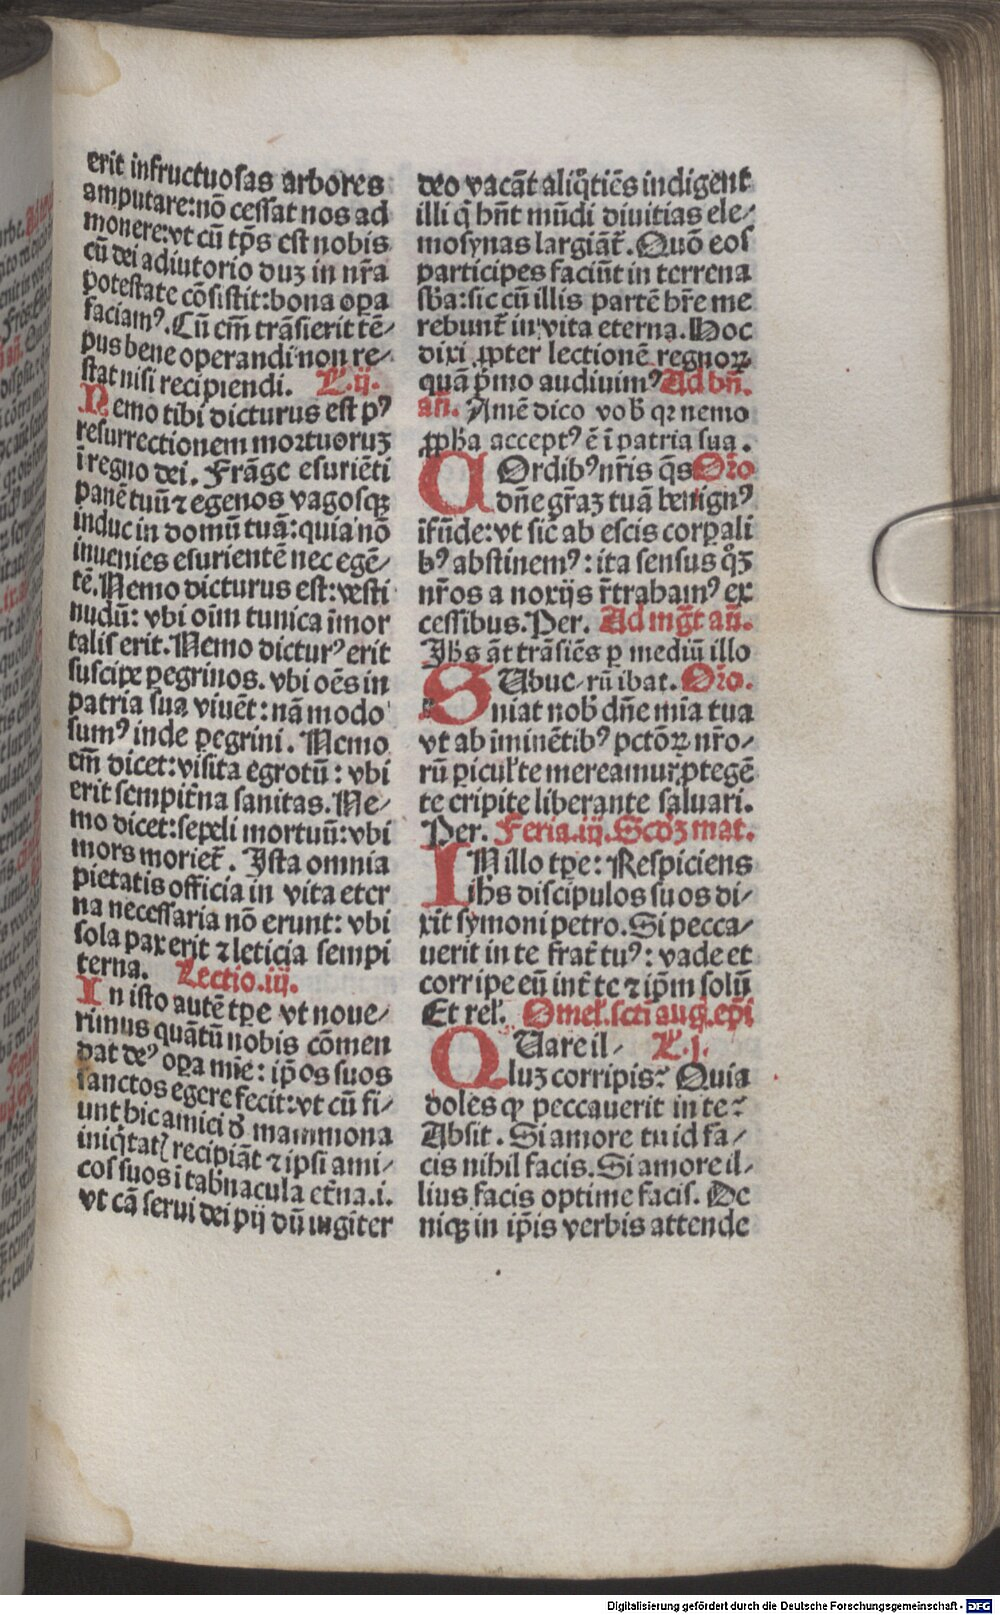 erit infructuosas arbores
amputare:nō cessat nos ad
monere:vt cū tp̄s est nobis
cū dei adiutorio duꝫ in nr̄a
potestate cōsistit:bona oꝑa
faciamꝰ. Cū em̄ trāsierit tē⸗
pus bene operandi non re⸗
stat nisi recipiendi. L.ij.
Nemo tibi dicturus est pꝰ
resurrectionem mortuoruꝫ
ī regno dei. Frāge esuriēti
panē tuū ⁊ egenos vagosqꝫ
induc in domū tuā: quia nō
inuenies esurientē nec egē⸗
tē. Nemo dicturus est: vesti
nudū: vbi oīm tunica īmor
talis erit. Nemo dicturꝰ erit
suscipe pegrinos. vbi oēs in
patria sua viuēt: nā modo
sumꝰ inde ꝑegrini. Nemo
em̄ dicet: visita egrotū: vbi
erit sempit̄na sanitas. Ne⸗
mo dicet: sepeli mortuū: vbi
mors moriet̄. Ista omnia
pietatis officia in vita eter
na necessaria nō erunt: vbi
sola pax erit ⁊ leticia sempi
terna. Lectio.iij.
In isto autē tꝑe vt noue⸗
rimus quātū nobis cōmen
dat deꝰ oꝑa mīe: ip̄os suos
sanctos egere fecit: vt cū fi⸗
unt hic amici d̄ mammona
iniq̄tatꝭ recipiāt ⁊ ipsi ami⸗
cos suos ī tabnacula et̄na.i.
vt cā serui dei pij dū iugiter
deo vacāt aliq̄tiēs indigent
illi q̄ hn̄t mūdi diuitias ele⸗
mosynas largiāt̄. Quō eos
participes faciūt in terrena
sb̄a: sic cū illis partē hr̄e me
rebunt̄ in vita eterna. Hoc
dixi ꝓpter lectionē regnoꝝ
quā p̄mo audiuimꝰ Ad bn̄.
an̄. Amē dico vob̄ qꝛ nemo
ꝓph̄a acceptꝰ ē ī patria sua.
COrdibꝰ nr̄is q̄s Or̄o
dn̄e gr̄aꝫ tuā benignꝰ
īfūde: vt sic̄ ab escis corꝑali
bꝰ abstinemꝰ: ita sensus q̄ꝫ
nr̄os a noxijs r̄trahamꝰ ex
cessibus. Per. Ad mḡt an̄.
Ih̄s āt trāsiēs ꝑ mediū illo
rū ibat. Or̄o.
SUbue⸗
niat nob̄ dn̄e mīa tua
vt ab iminētibꝰ pctōꝝ nr̄o⸗
rū ꝑicul̄ te mereamur ꝓtegē
te eripi te liberante saluari.
Per. Feria.iij. Scd̄ꝫ mat.
IN illo tꝑe: Respiciens
ih̄s discipulos suos di⸗
xit symoni petro. Si pecca⸗
uerit in te frat̄ tuꝰ: vade et
corripe eū int̄ te ⁊ ip̄m solū
Et rel̄. Omel̄. scti aug. ep̄i
QUare il⸗ L.j.
luꝫ corripis? Quia
doles ꝙ peccauerit in te?
Absit. Si amore tui id fa⸗
cis nihil facis. Si amore il⸗
lius facis optime facis. De
niqꝫ in ip̄is verbis attende
Digitalisierung gefördert durch die Deutsche Forschungsgemeinschaft - DFG